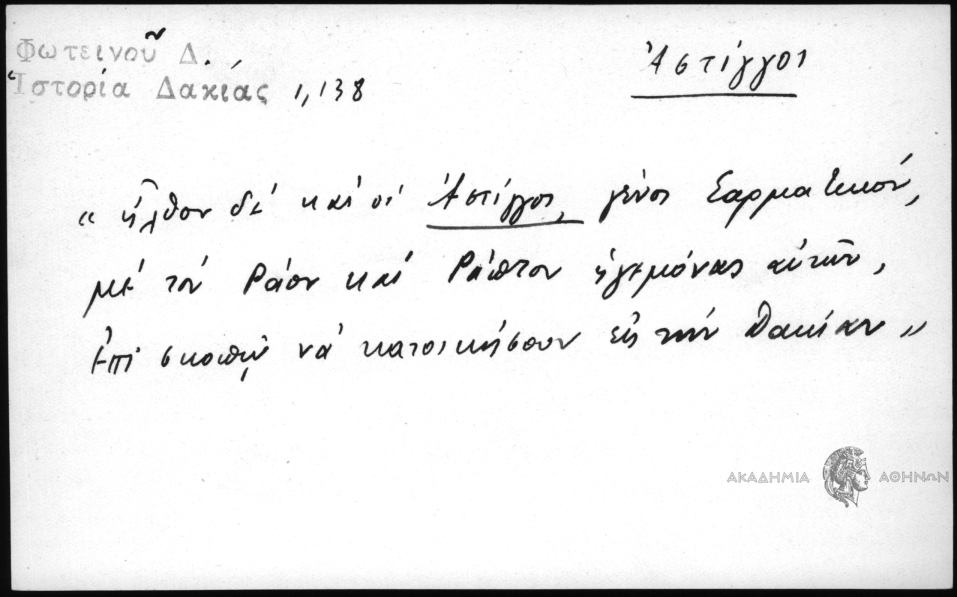 Φωτεινοῦ Δ.
Ἱστορία Δακίας 1,138
Ἀστίγγοι
“ ἦλθον δὲ καὶ οἱ Ἀστίγγοι, γένος Σαρματικόν,
μὲ τὸν Ράον καὶ Ράπτον ἡγεμόνας αὐτῶν,
ἐπὶ σκοπῷ νὰ κατοικήσουν εἰς τὴν Δακίαν ”
ΑΚΑΔΗΜΙΑ ΑΘΗΝΩΝ